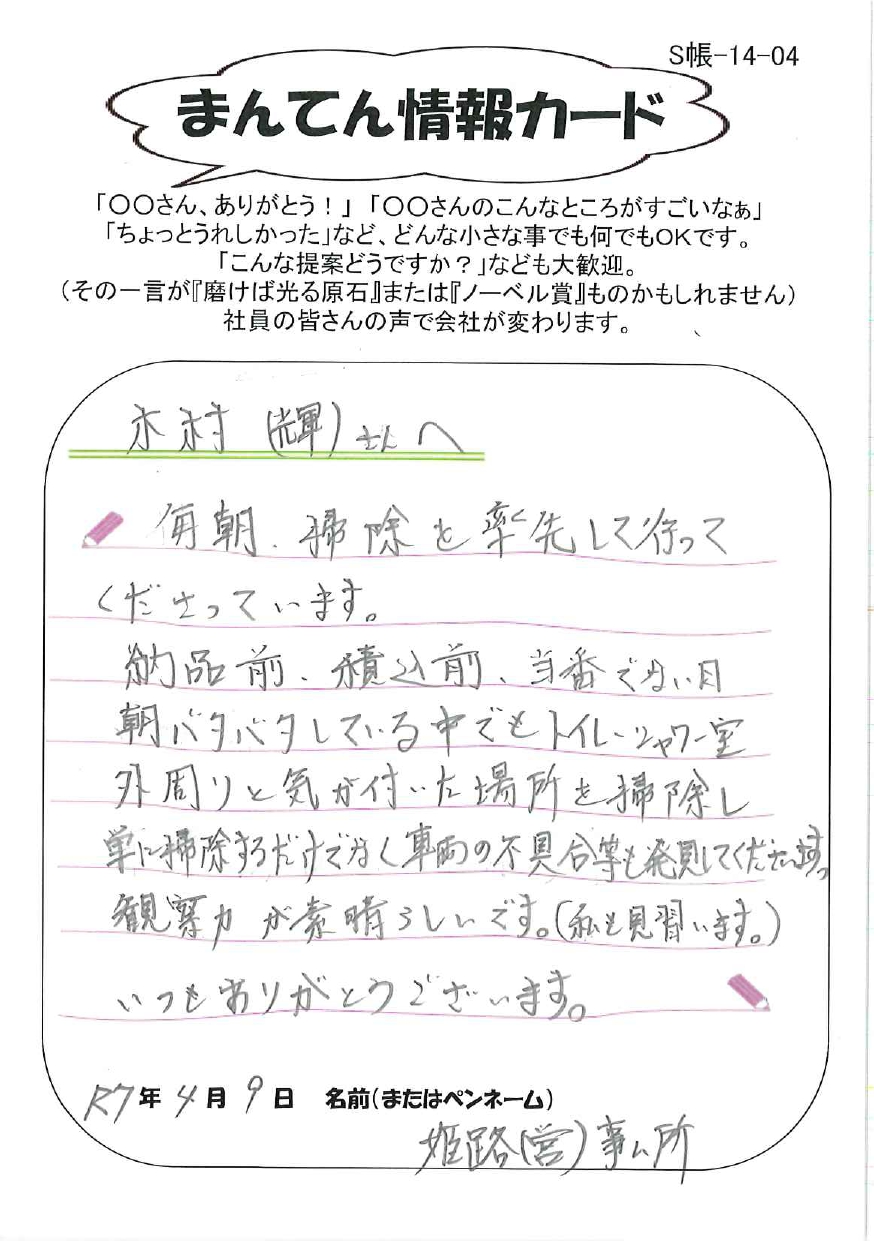 S帳-14-04
まんてん情報カード
「〇〇さん、ありがとう！」「〇〇さんのこんなところがすごいなぁ」
「ちょっとうれしかった」など、どんな小さな事でも何でもOKです。
「こんな提案どうですか？」なども大歓迎。
（その一言が『磨けば光る原石』または『ノーベル賞』ものかもしれません）
社員の皆さんの声で会社が変わります。
木村（輝）さんへ
毎朝、掃除を率先して行って
くださっています。
納品前、積込前、当番でない日
朝バタバタしている中でもトイレ・シャワー室
外周りと気が付いた場所を掃除し
単に掃除するだけでなく車両の不具合等も発見してくださいます。
観察力が素晴らしいです。（私も見習います。）
いつもありがとうございます。
R7年4月9日 名前（またはペンネーム）
姫路（営）事ム所